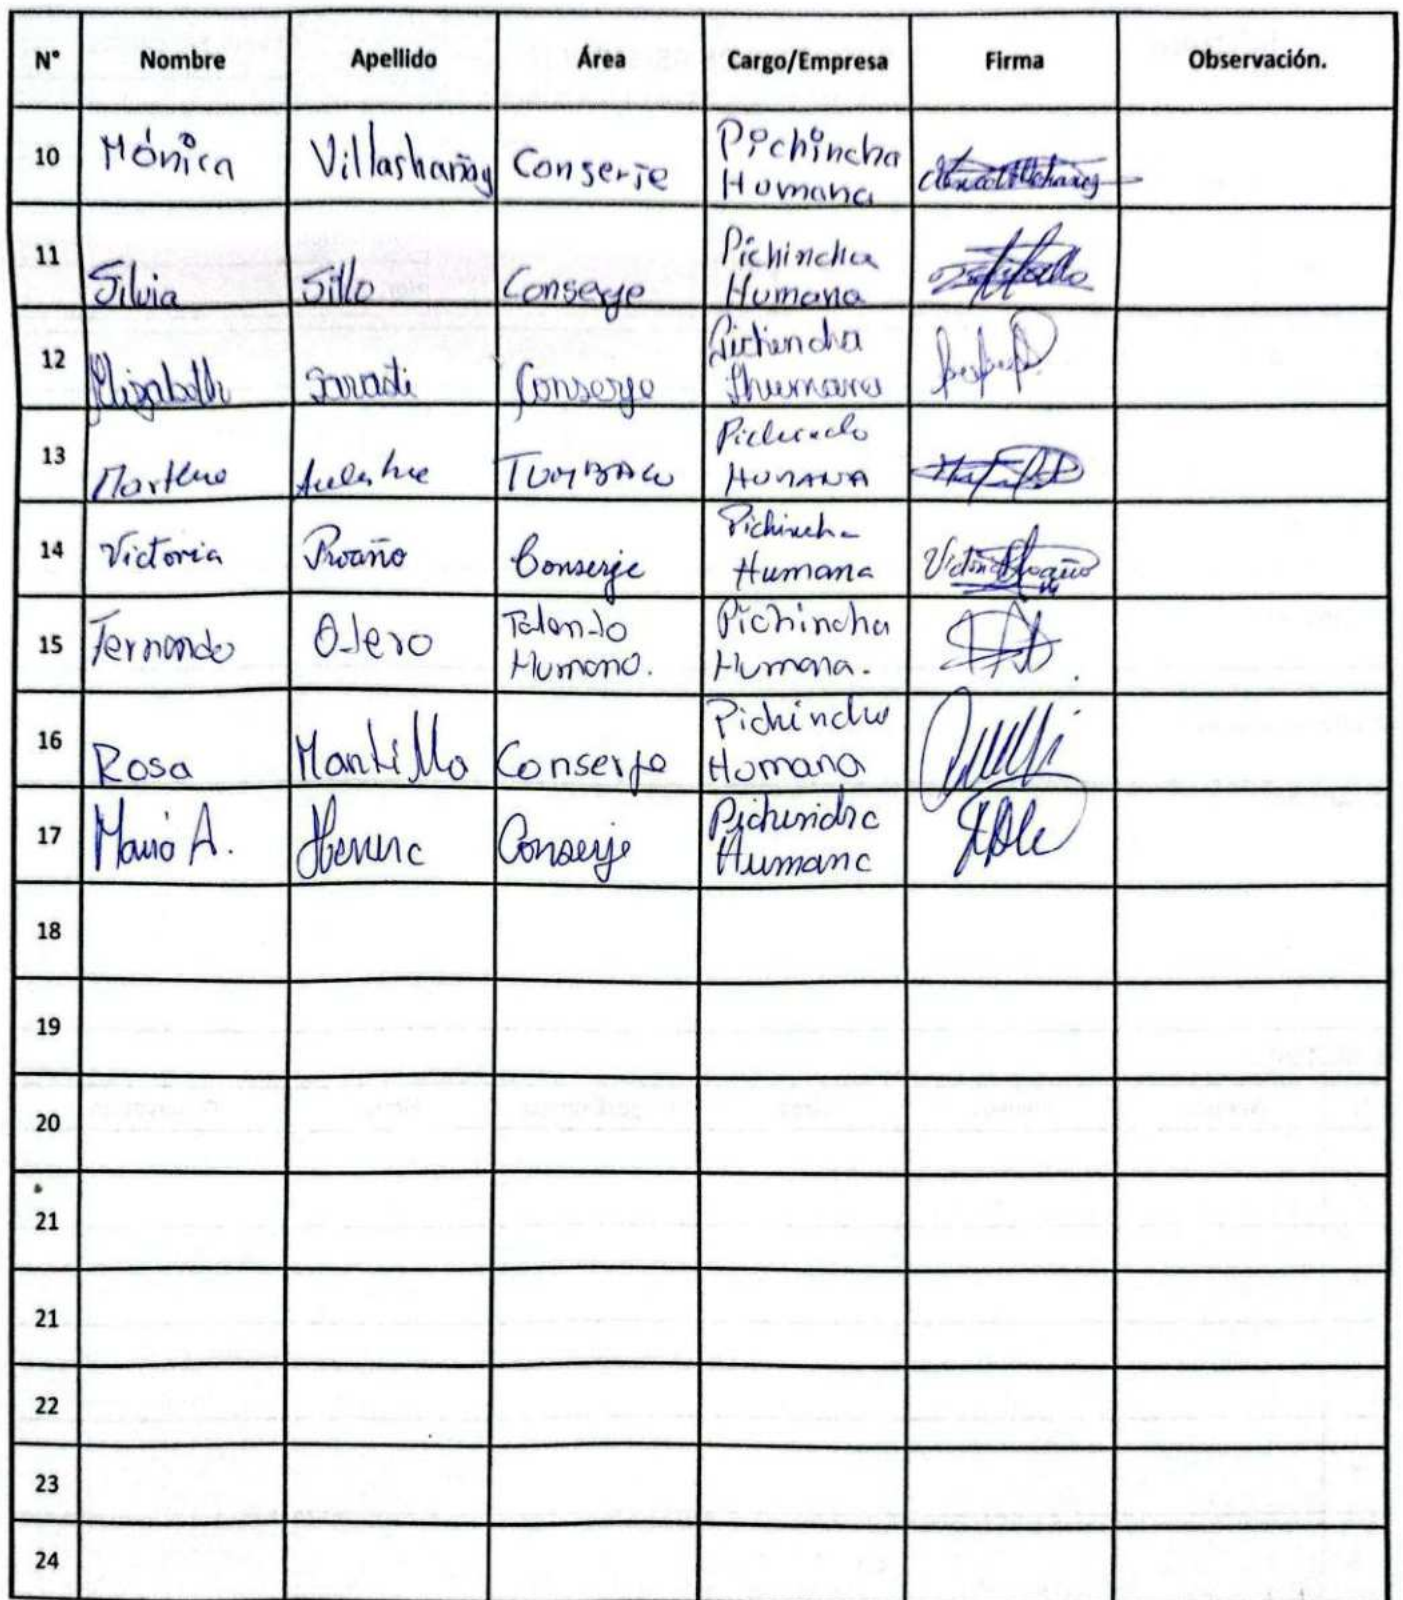 N° Nombre Apellido Área Cargo/Empresa Firma Observación.
10 Mónica Conserje Pichincha Humana
11 Silvia Sillo Conserje Pichincha Humana
12 Conserje Pichincha Humana
13 TUMBACO HUMANA
14 Victoria Proaño Conserje Pichincha Humana
15 Fernando Otero Talento Humano. Pichincha Humana.
16 Rosa Mantilla Conserje Pichincha Humana
17 A. Conserje Pichincha Humana
18
19
20
21
21
22
23
24